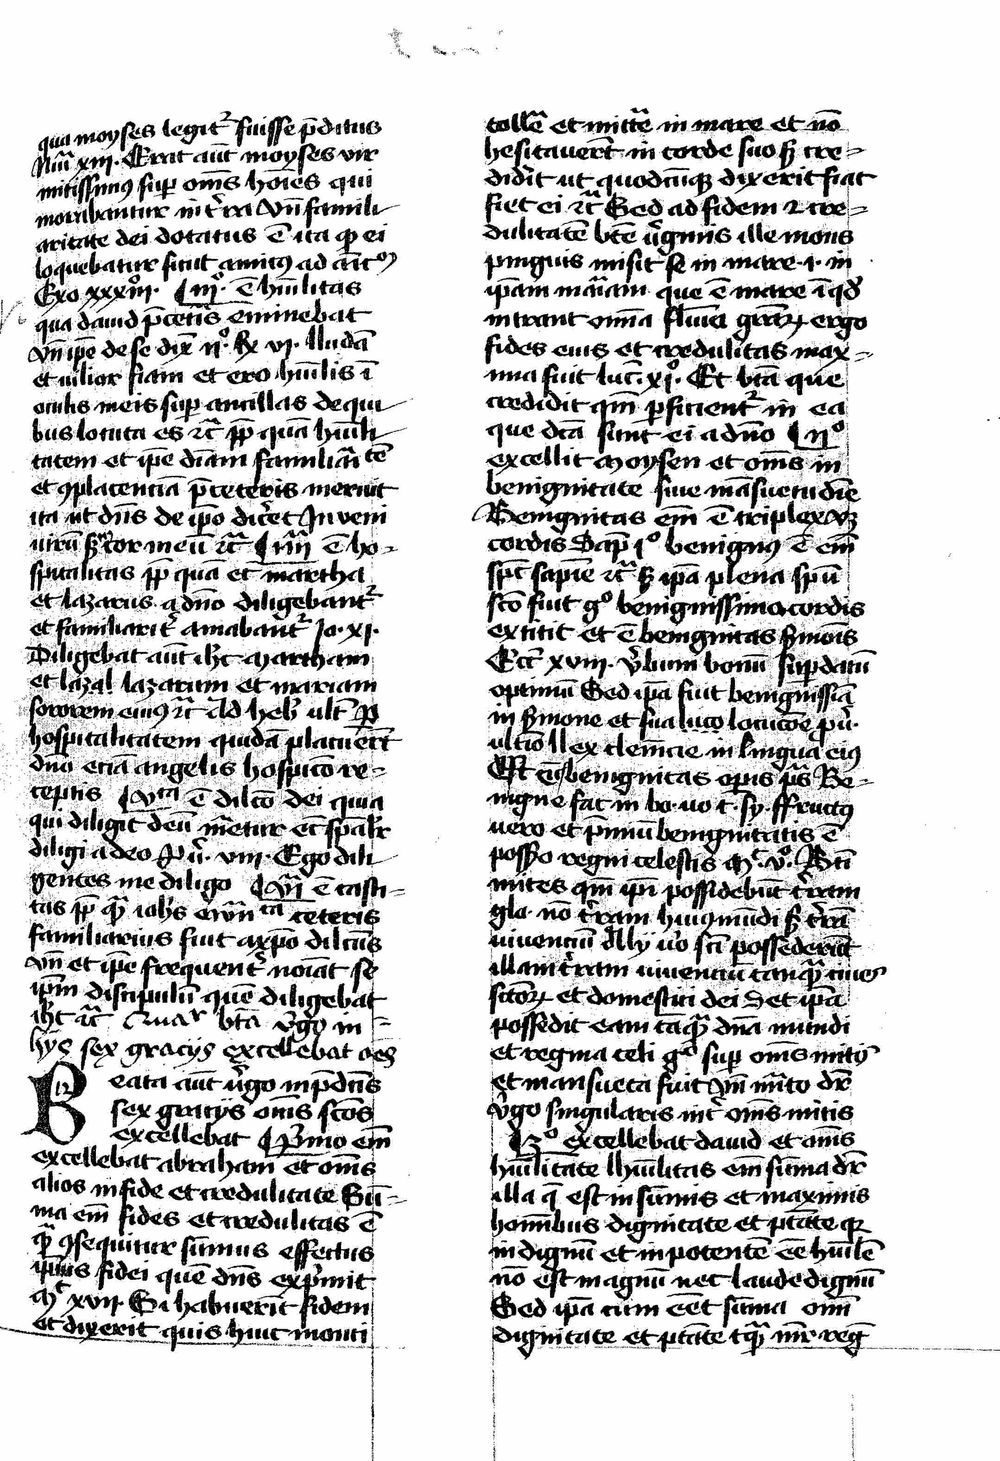 qua moyses legit᷑ fuisse p̄ditus
Nūi xiii. Erat aūt moyses vir
mitissimꝰ sup om̄s hoīes qui
morabantur in t̄ra Vn̄ famili
aritate dei dotatus ē ita ꝙ ei
loquebatur sicut amicꝰ ad amicū
Exo xxxiii. ¶ iii° ē hūilitas
qua dauid p̄ceteris eminebat
vn̄ ip̄e de se dix̄ ii° Rꝫ vi. lludā
et vilior fiam et ero hūilis ī
oculis meis sup ancillas de qui
bus locuta es ⁊c̄ ꝓp̄ quā hūili
tatem et ip̄e diuiam familiaritatē
et ꝯplacenciā p̄ceteris meruit
ita ut dn̄s de ip̄o dic̄et Inveni
uirū scd̄m cor meū ⁊c̄ ¶ iiii ē ho-
spitalitas ꝓp̄ quā et martha
et lazarus a dn̄o diligebant᷑
et familiarit̄ amabant᷑ Io. xi.
Diligebat aūt ih̄c martham
et lazal lazarum et mariam
sororem eiꝰ ⁊c̄ Ad heb̄ ult̄ ꝑ
hospitalitatem quidā placuer̄t
dn̄o eciā angelis hospicio re-
ceptis ¶ Vta ē dilc̄o dei quia
qui diligit deū mēetur et sp̄al̄r
diligi a deo Pū. viii. Ego dili
gentes me diligo ¶ Vi ē casti-
tas ꝓp̄ quā ioh̄es ewāista ceteris
familiarius fuit a xp̄o dilc̄us
vn̄ et ip̄e frequent̄ noīat se
ip̄m discipulū quē diligebat
ih̄c ⁊c̄ Quar̄ btā v̄go in
hijs sex gracijs excellebat oēs
Beata aūt v̄go in p̄dc̄is
sex gracijs om̄s sc̄os
excellebat ¶ P̄mo em̄
excellebat abraham et om̄s
alios in fide et credulitate Sū-
ma em̄ fides et credulitas ē
quā ꝯsequitur sūmus effectus
ipsius fidei quē dn̄s exp̄mit
Mᶜ xvii. Si habuerit̄ fidem
et dixerit quis huic monti
tollē et mitt̄e in mare et nō
hesitauerīt in corde suo sꝫ cre-
didīt ut quodcūqꝫ dixerit fiat
fiet ei ⁊c̄ Sed ad fidem ⁊ cre-
dulitatē bt̄e v̄ginis ille mons
pinguis misit se in mare .i. in
ip̄am māiam que ē mare ī qd̄
intrant om̄ia flūia grāꝝ ergo
fides eius et credulitas max-
ima fuit luc̄. xi°. Et btā que
credidit qm̄ ꝑficient᷑ in ea
que dc̄a sunt ei a dn̄o ¶ ii°
excellit moysen et om̄s in
benignitate siue māsuetudīe
Benignitas em̄ ē triplex vꝫ
cordis Sap̄ i° benignꝰ ē em̄
sp̄c sapīe ⁊c̄ sꝫ ip̄a plena sp̄ū
sc̄o fuit gᵒ benignissima cordis
extitit et ē benignitas sermonis
Ecc̄ xviii. v̄bum bonū sup datū
optimū Sed ip̄a fuit benignissīa
in sermone et sua luco locucōe pū.
ultīo llex clemīcie in lingua eiꝰ
Est eciā benignitas oꝑis p̄s Be-
nigne fac in bo. uo t. sy. ffructꝰ
uero et p̄miū benignitatis ē
possio regni celestis Mᶜ v°. Bt̄i
mites qm̄ ip̄i possidebūt t̄ram
glo. nō t̄ram huiꝰmodi sꝫ t̄rā
uiuenciū Illi uō sc̄i possederūt
illam t̄ram uiuenciū tanquā ciues
sc̄oꝝ et domestici dei Sꝫ et ip̄a
possedit eam tāquā dn̄a mundi
et regina celi gᵒ sup om̄s mitꝭ
et mansueta fuit vn̄ m̄ito dr̄
v̄go singularis int̄ om̄s mitis
¶ 3° excellebat dauid et om̄s
hūilitate lhūilitas em̄ sūma dr̄
illa q̄ est in sūmis et maximis
hom̄ibus dignitate et ptāte qꝛ
indignū et inpotentē eē hūilē
nō est magnū nec laude dignū
Sed ip̄a cum eēt sūma om̄i
dignitate et ptāte tquā mr̄ reḡ